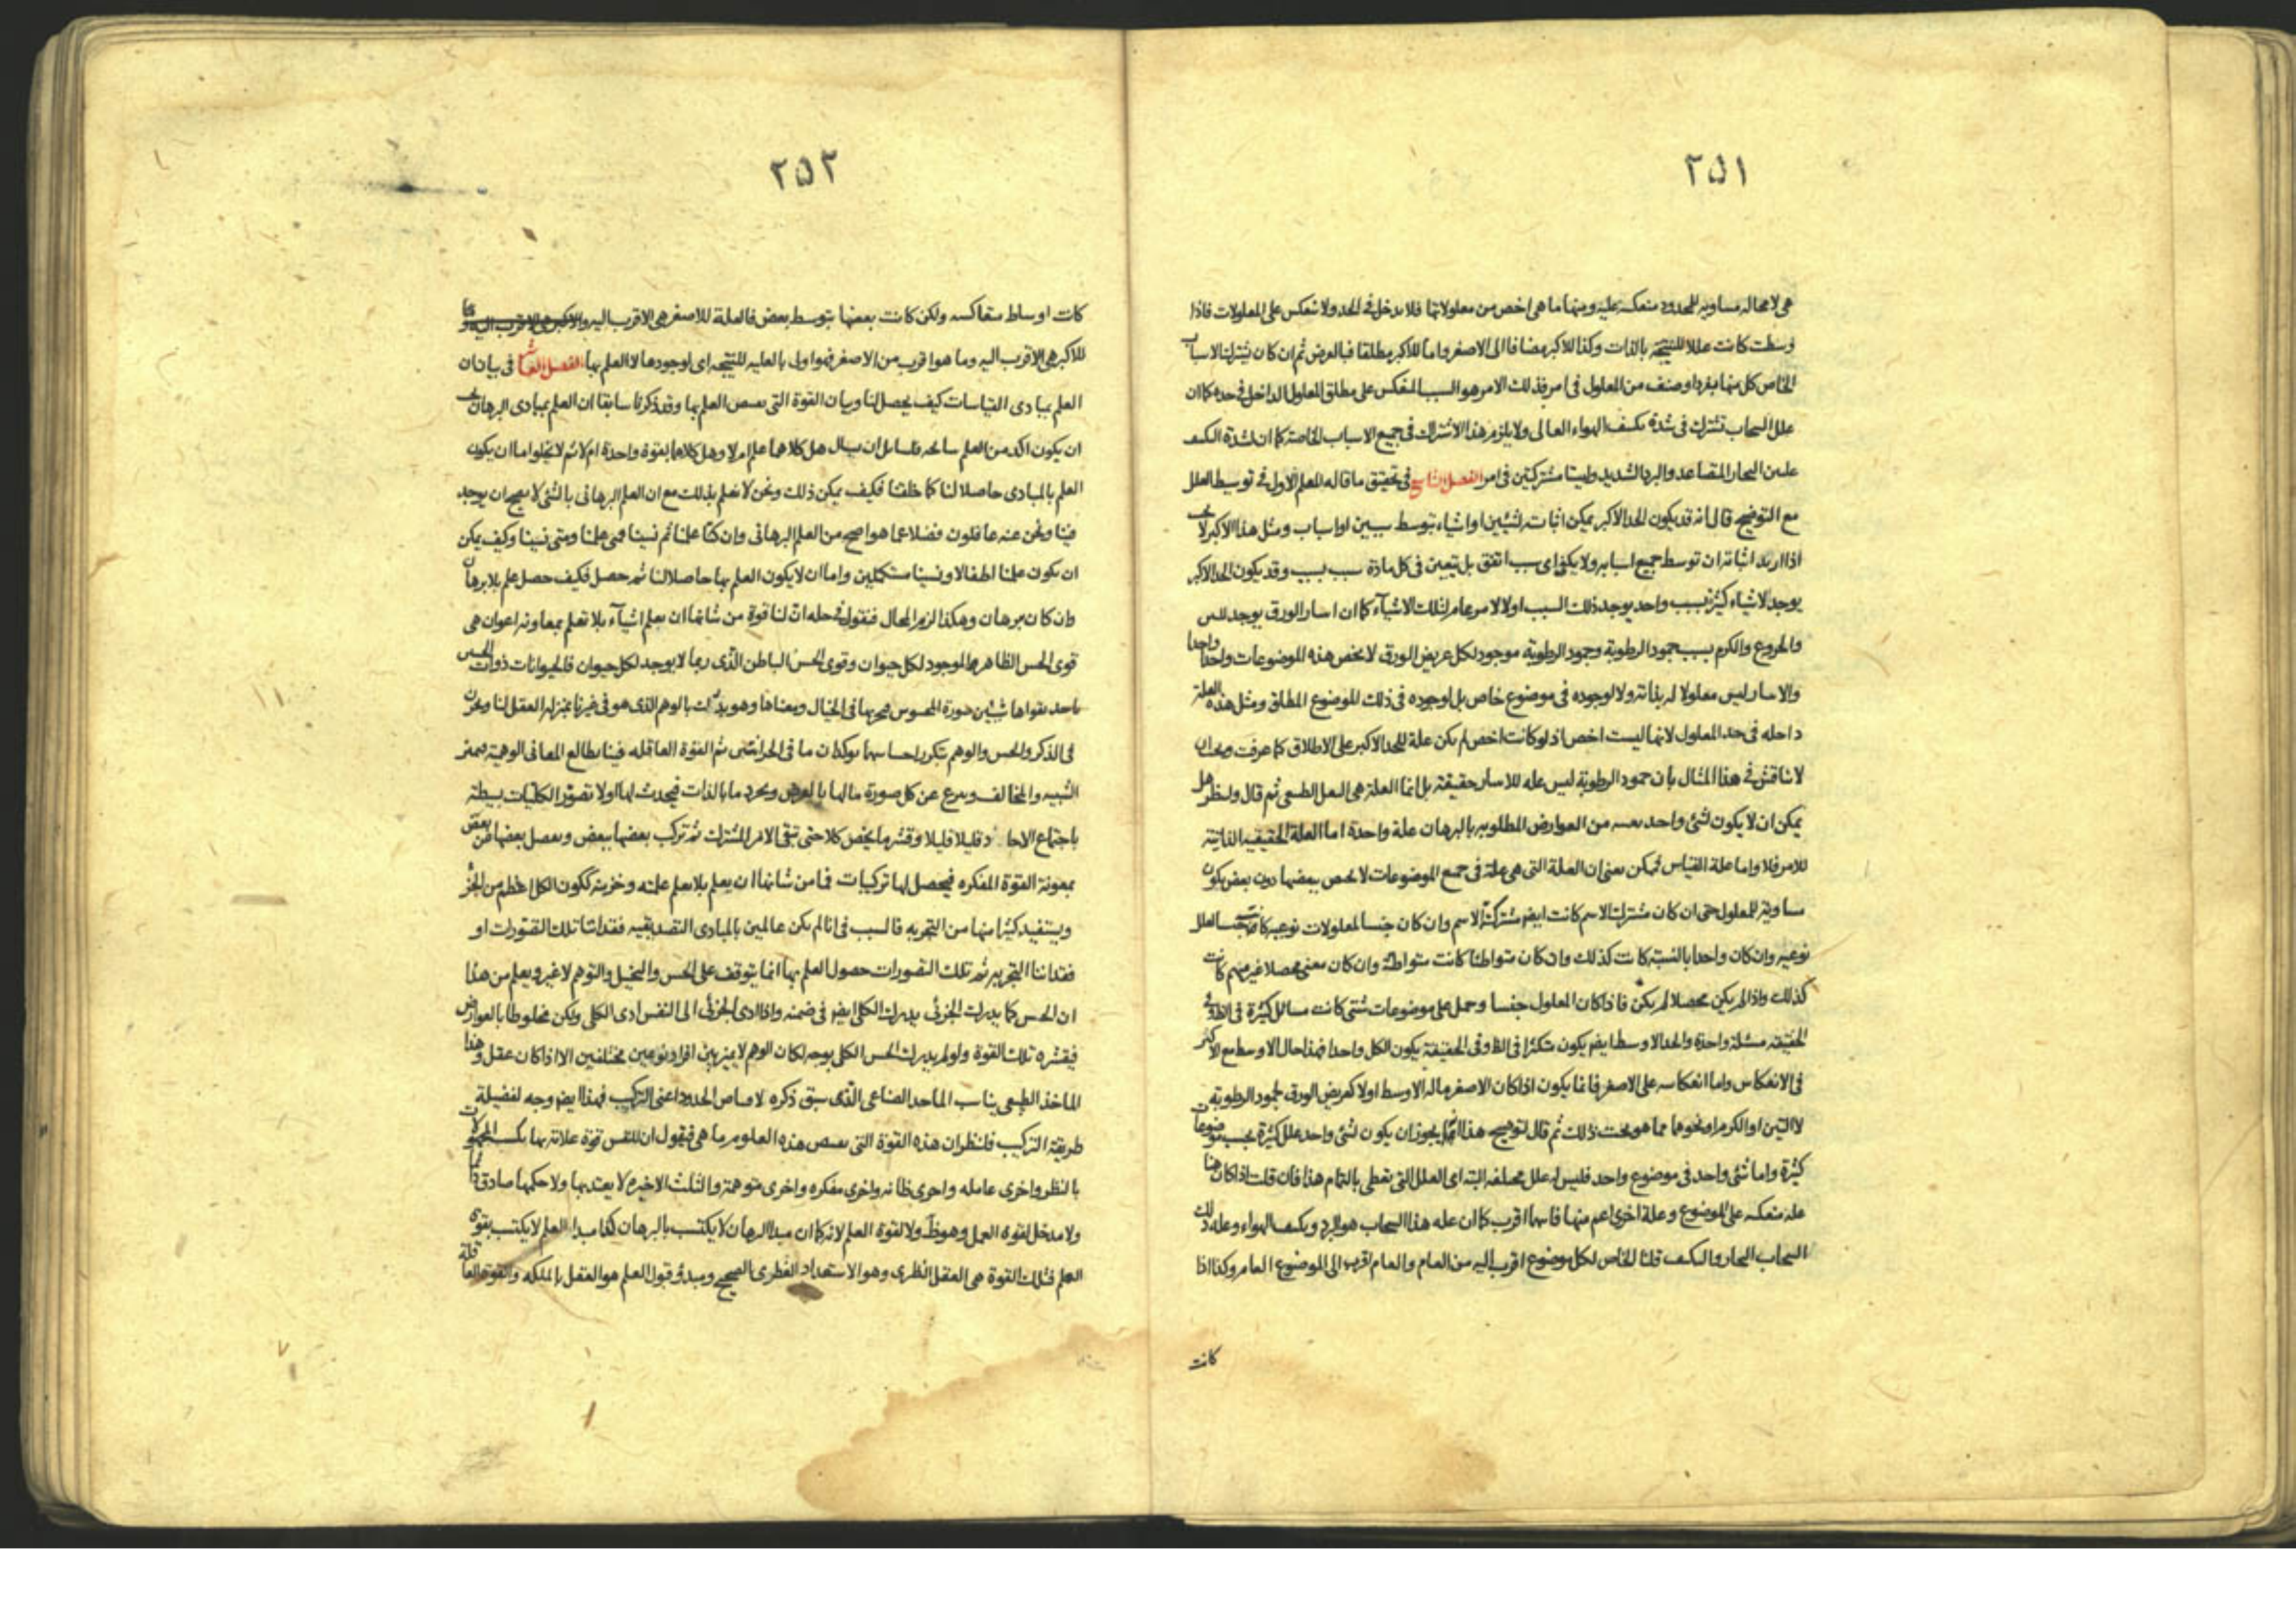 ٢٥١
هى لا محاله مساويه للمحدود منعكسه عليه ومنها ما هى اخص من معلولاتها فلا يدخل فى الحد ولا تنعكس على المعلولات فاذا
وسطت كانت عللا للنتيجة بالذات وكذا للاكبر مضافا الى الاصغر واما للاكبر مطلقا فبالعرض ثم ان كان تشترك الاسباب
الخاص كل منها بفرد او صنف من المعلول فى امر فذلك الامر هو السبب المنعكس على مطلق المعلول الداخل فى حده كما ان
علل السحاب تشترك فى شدة تكثف الهواء العالى ولا يلزم هذا الاشتراك فى جميع الاسباب الخاصة كما ان لشدة التكثف
علتين البخار المتصاعد والبرد الشديد وليستا مشتركتين فى امر الفصل التاسع فى تحقيق ما قاله المعلم الاول فى توسيط العلل
مع التوضيح قال انه قد يكون الحد الاكبر يمكن اثباته لشيئين او اشياء بتوسط سببين او اسباب ومثل هذا الاكبر لا يجب
اذا اريد اثباته ان توسط جميع اسبابه ولا يكفى اى سبب اتفق بل يتعين فى كل مادة سبب سبب وقد يكون الحد الاكبر
يوجد لاشياء كثيرة بسبب واحد يوجد ذلك السبب اولا لامر عام لتلك الاشيآء كما ان انتثار الورق يوجد للتين
والخروع والكرم بسبب جمود الرطوبة وجمود الرطوبة موجود لكل عريض الورق لا يخص هذه الموضوعات واحدا واحدا
والانتثار ليس معلولا له بذاته ولا لوجوده فى موضوع خاص بل لوجوده فى ذلك الموضوع المطلق ومثل هذه العلة
داخله فى حد المعلول لانها ليست اخص اذ لو كانت اخص لم يكن علة للحد الاكبر على الاطلاق كما عرفت ويجب ان
لا تناقش فى هذا المثال بان جمود الرطوبة ليس عله للانتثار حقيقة بل انما العلة هى الفعل الطبيعى ثم قال ولننظر هل
يمكن ان لا يكون لشئ واحد بعينه من العوارض المطلوبه بالبرهان علة واحدة اما العلة الحقيقيه الذاتية
للامر فلا واما علة القياس فيمكن بمعنى ان العلة التى هى علة فى جميع الموضوعات لا يخص ببعضها دون بعض يكون
مساوية للمعلول حتى ان كان مشترك الاسم كانت ايضا مشتركة الاسم وان كان جنسا لمعلولات نوعيه كانت جنسا لعلل
نوعيه وان كان واحدا بالنسبة كانت كذلك وان كان متواطئا كانت متواطئة وان كان معنى محصلا غير مبهم كانت
كذلك واذا لم يكن محصلا لم يكن فاذا كان المعلول جنسا وحمل على موضوعات شتى كانت مسائل كثيرة فى الظ وفى
الحقيقة مسئلة واحدة والحد الاوسط ايضا يكون متكثرا فى الظ وفى الحقيقة يكون الكل واحدا فهذا حال الاوسط مع الاكبر
فى الانعكاس واما انعكاسه على الاصغر فانما يكون اذا كان الاصغر ما له الاوسط اولا كعريض الورق لجمود الرطوبة
لا التين او الكرم او نحوها مما هو تحت ذلك ثم قال لتوضيح هذا انما يجوز ان يكون لشئ واحد علل كثيرة بحسب موضوعات
كثيرة واما شئ واحد فى موضوع واحد فليس له علل مختلفه البته اى العلل التى تعطى بالتمام هذا فان قلت اذا كان هنا
علة منعكسه على الموضوع وعلة اخرى اعم منها فايهما اقرب كما ان علة هذا السحاب هو البرد وتكثف الهواء وعلة ذلك
السحاب البخار والتكثف قلنا الخاص لكل موضوع اقرب اليه من العام والعام اقرب الى الموضوع العام وكذا اذا
كانت
٢٥٢
كانت اوساط متعاكسه ولكن كانت بعضها بتوسط بعض فالعلة للاصغر هى الاقرب اليه
للاكبر هى الاقرب اليه وما هو اقرب من الاصغر فهو اولى بالعليه للنتيجه اى لوجودها لا العلم بها الفصل العاشر فى بيان ان
العلم بمبادى القياسات كيف يحصل لنا وبيان القوة التى تخص العلم بها وقد ذكرنا سابقا ان العلم بمبادى البرهان يجب
ان يكون اكد من العلم بنتائجه فلسائل ان يسال هل كلاهما علم ام لا وهل كلاهما بقوة واحدة ام لا ثم لا يخلو اما ان يكون
العلم بالمبادى حاصلا لنا كما خلقنا فكيف يمكن ذلك ونحن لا نعلم بذلك مع ان العلم البرهانى بالشئ لا يصح ان يوجد
فينا ونحن عنه غافلون فضلا عما هو اصح من العلم البرهانى وان كنا علمنا ثم نسينا فمتى علمنا ومتى نسينا وكيف يمكن
ان يكون علمنا اطفالا ونسينا مستكملين واما ان لا يكون العلم بها حاصلا لنا ثم حصل فكيف حصل علم بلا برهان
وان كان ببرهان وهكذا لزم المحال فنقول فى حله ان لنا قوة من شانها ان يعلم اشيآء بلا تعلم بمعاونه اعوان هى
قوى الحس الظاهر الموجود لكل حيوان وقوى الحس الباطن الذى ربما لا يوجد لكل حيوان فالحيوانات ذوات الحس
ياخذ بقواها شيئين صورة المحسوس فيخزنها فى الخيال ومعناها وهو يدرك بالوهم الذى هو فى غيرنا بمنزله العقل لنا ويخزن
فى الذكر والحس والوهم تتكرر احساسهما ثم القوة العاقله فينا يطالع المعانى الوهمية فيميز
الشبيه والمخالف وينزع عن كل صورة ما لها بالعرض ويجرد ما بالذات فيحدث لها اولا تصور الكليات بسيطة
باجتماع الاحاد قليلا قليلا وقشر ما يخص كلا حتى تبقى الامر المشترك ثم تركب بعضها ببعض ويفصل بعضها من بعض
بمعونة القوة المفكره فيحصل لها تركيبات فما من شانها ان يعلم بلا تعلم علمته وخزنته ككون الكل اعظم من الجزء
ويستفيد كثيرا منها من التجربه فالسبب فى انا لم نكن عالمين بالمبادى التصديقيه فقداننا تلك التصورات او
فقداننا التجربه ثم تلك التصورات حصول العلم بها انما يتوقف على الحس والتخيل والتوهم لا غير ويعلم من هذا
ان الحس كما يدرك الجزئى يدرك الكلى ايضا فى ضمنه واذا ادى الجزئى الى النفس ادى الكلى ولكن مخلوطا بالعوارض
فيقشره تلك القوة ولو لم يدرك الحس الكلى بوجه لكان الوهم لا يميز بين افراد نوعين مختلفين الا اذا كان عقل وهذا
الماخذ الطبيعى يناسب الماخذ الصناعى الذى سبق ذكره لاقتناص الحدود اعنى التركيب فهذا ايضا وجه لفضيلة
طريقة التركيب فلننظر ان هذه القوة التى تخص هذه العلوم ما هى فنقول ان للنفس قوة علامة بها يكتسب المجهولات
بالنظر واخرى عاملة واخرى ظانه واخرى مفكره واخرى متوهمة والثلث الاخيره لا يعتد بها ولا حكمها صادق دائما
ولا مدخل لقوة العمل وهو ظ ولا لقوة العلم لانه كما ان مبدا البرهان لا يكتسب بالبرهان كذا مبدا العلم لا يكتسب بقوة
العلم فتلك القوة هى العقل النظرى وهو الاستعداد الفطرى الصحيح ومبدؤ قبول العلم هو العقل بالملكه والقوة العاقلة